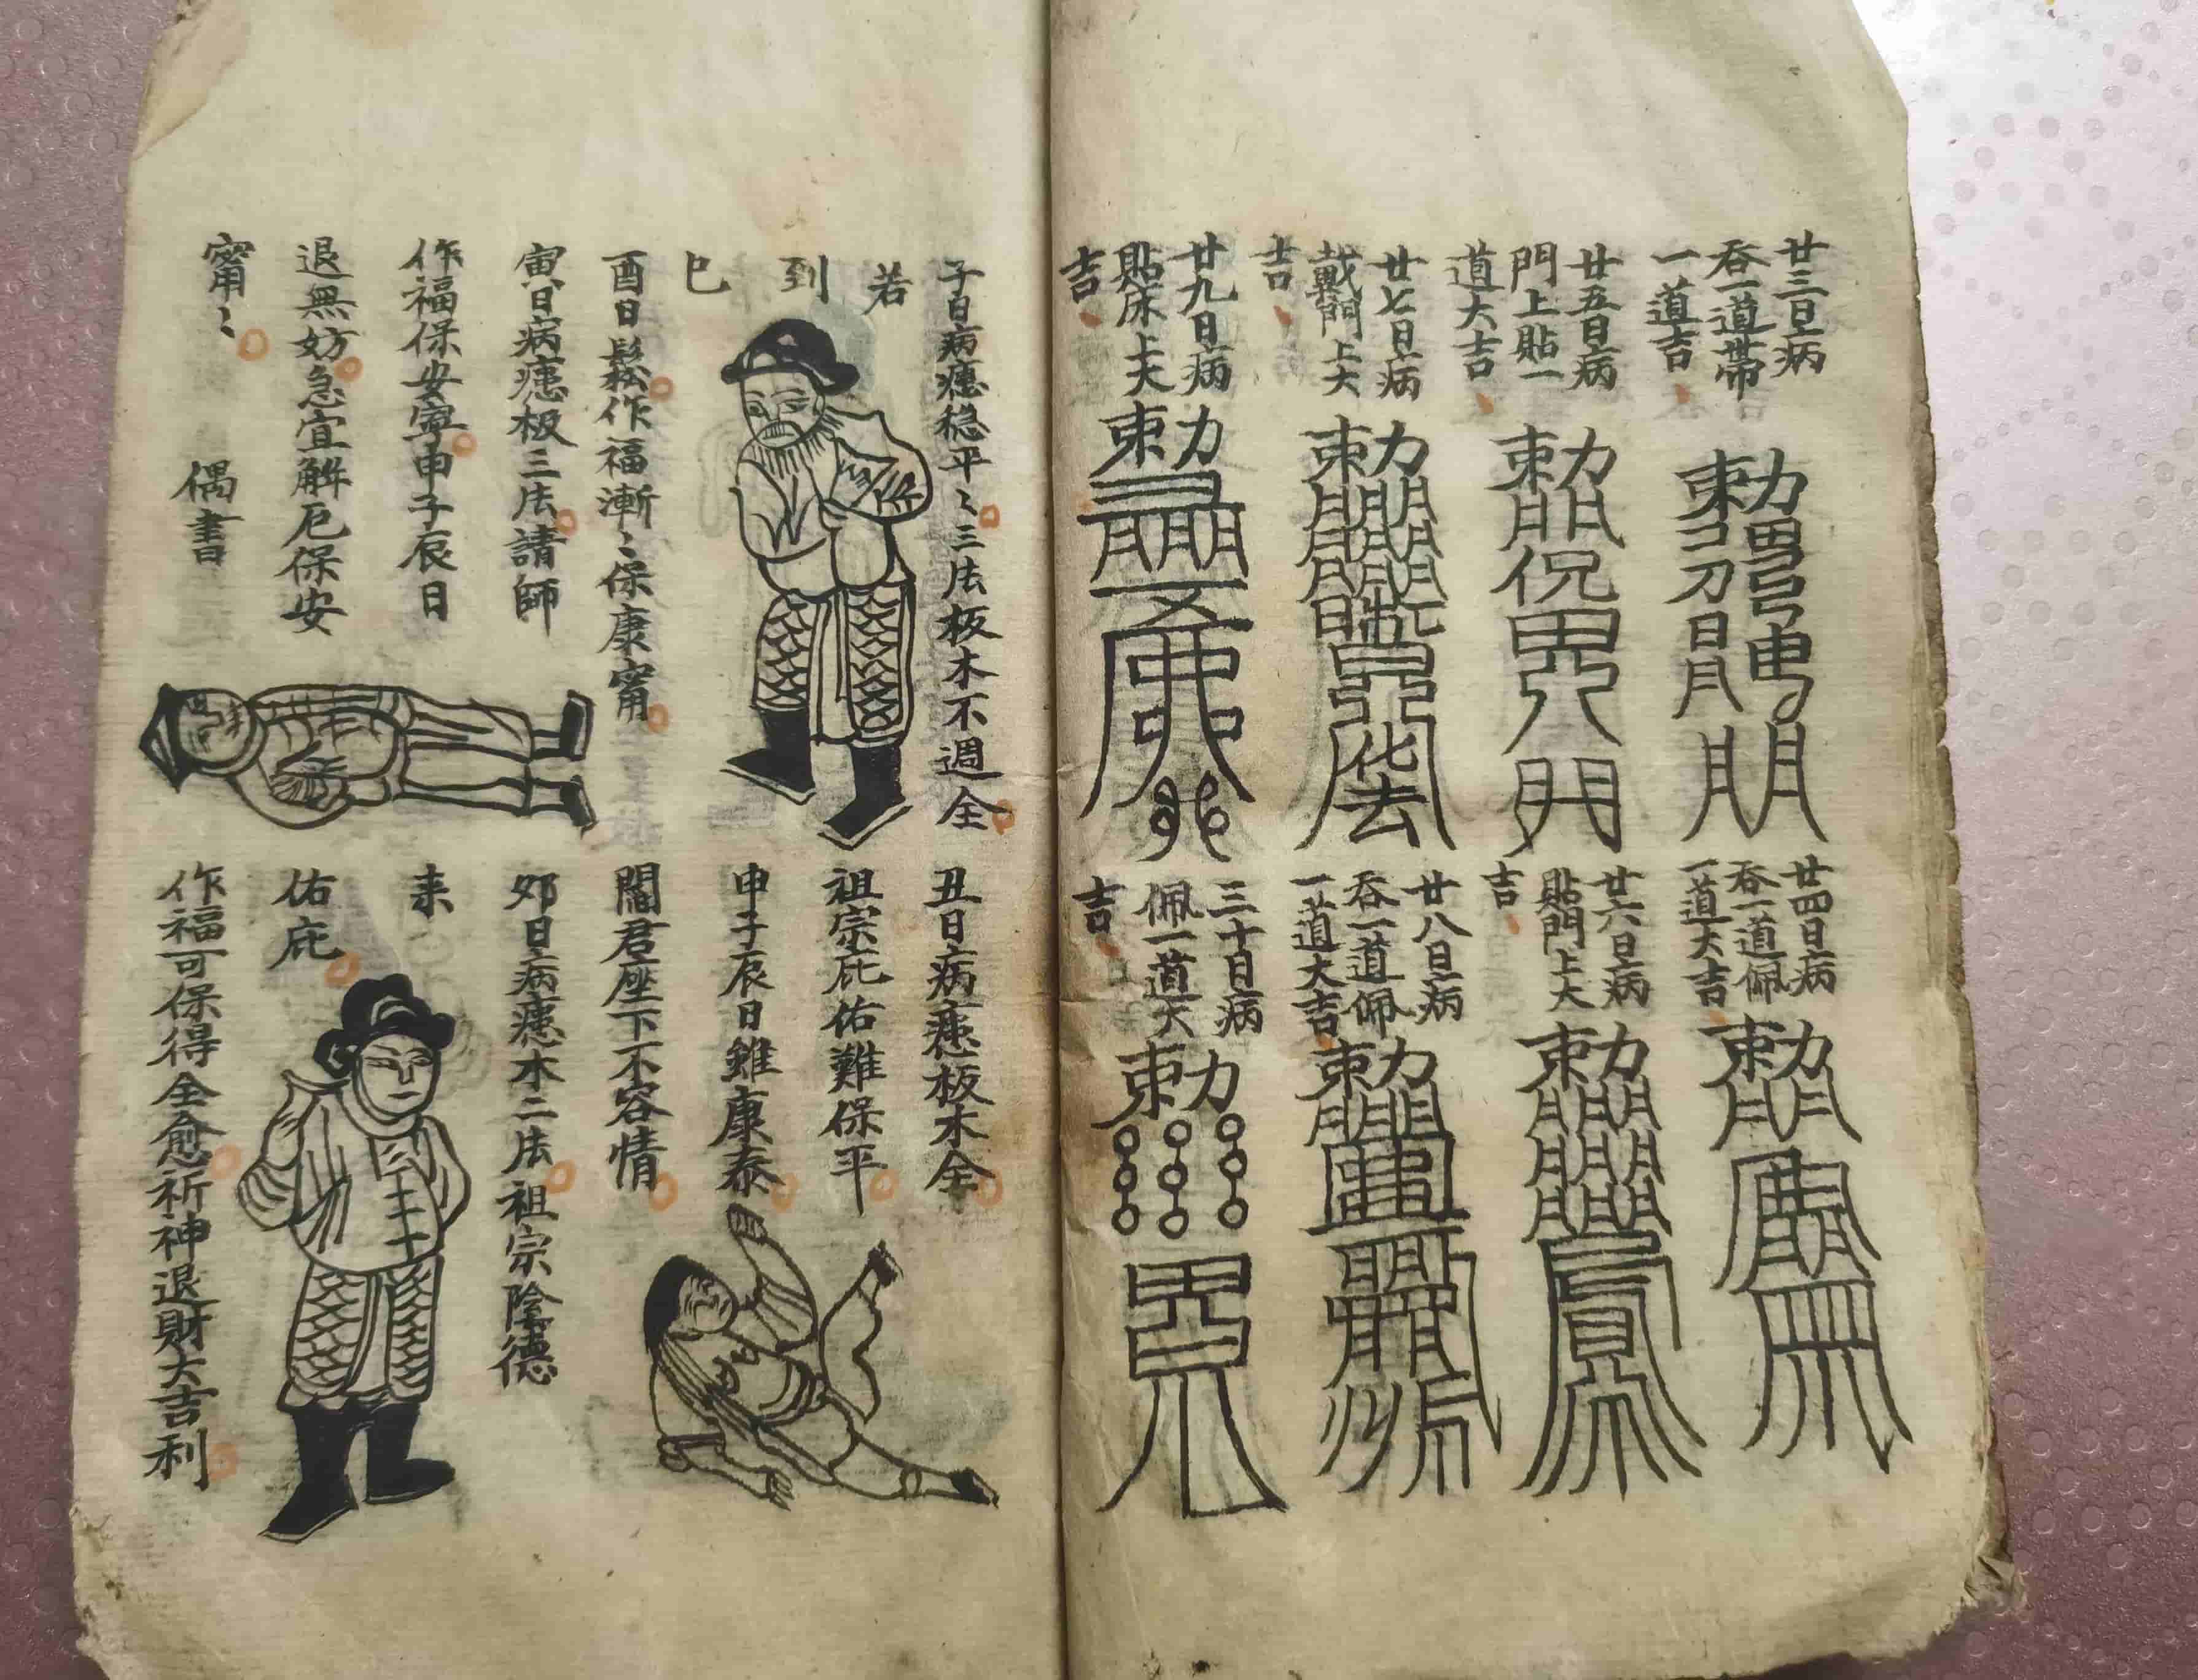 廿三日病
吞一道帶
一道吉
廿五日病
門上貼一
道大吉
廿七日病
戴門上大
吉
廿九日病
貼床上大
吉
廿四日病
吞一道佩
一道大吉
廿六日病
貼門上大
吉
廿八日病
吞一道佩
一道大吉
三十日病
佩一道大
吉
子日病穩平〻三法板木不週全
若
到
巳
酉日鬆作福漸〻保康甯
寅日病板三法請師
作福保安寧申子辰日
退無妨急宜解厄保安
甯〻
偶書
丑日病板木全
祖宗庇佑難保平
申子辰日雖康泰
閻君座下不容情
卯日病木二法祖宗陰德
来
佑庇
作福可保得全愈祈神退財大吉利